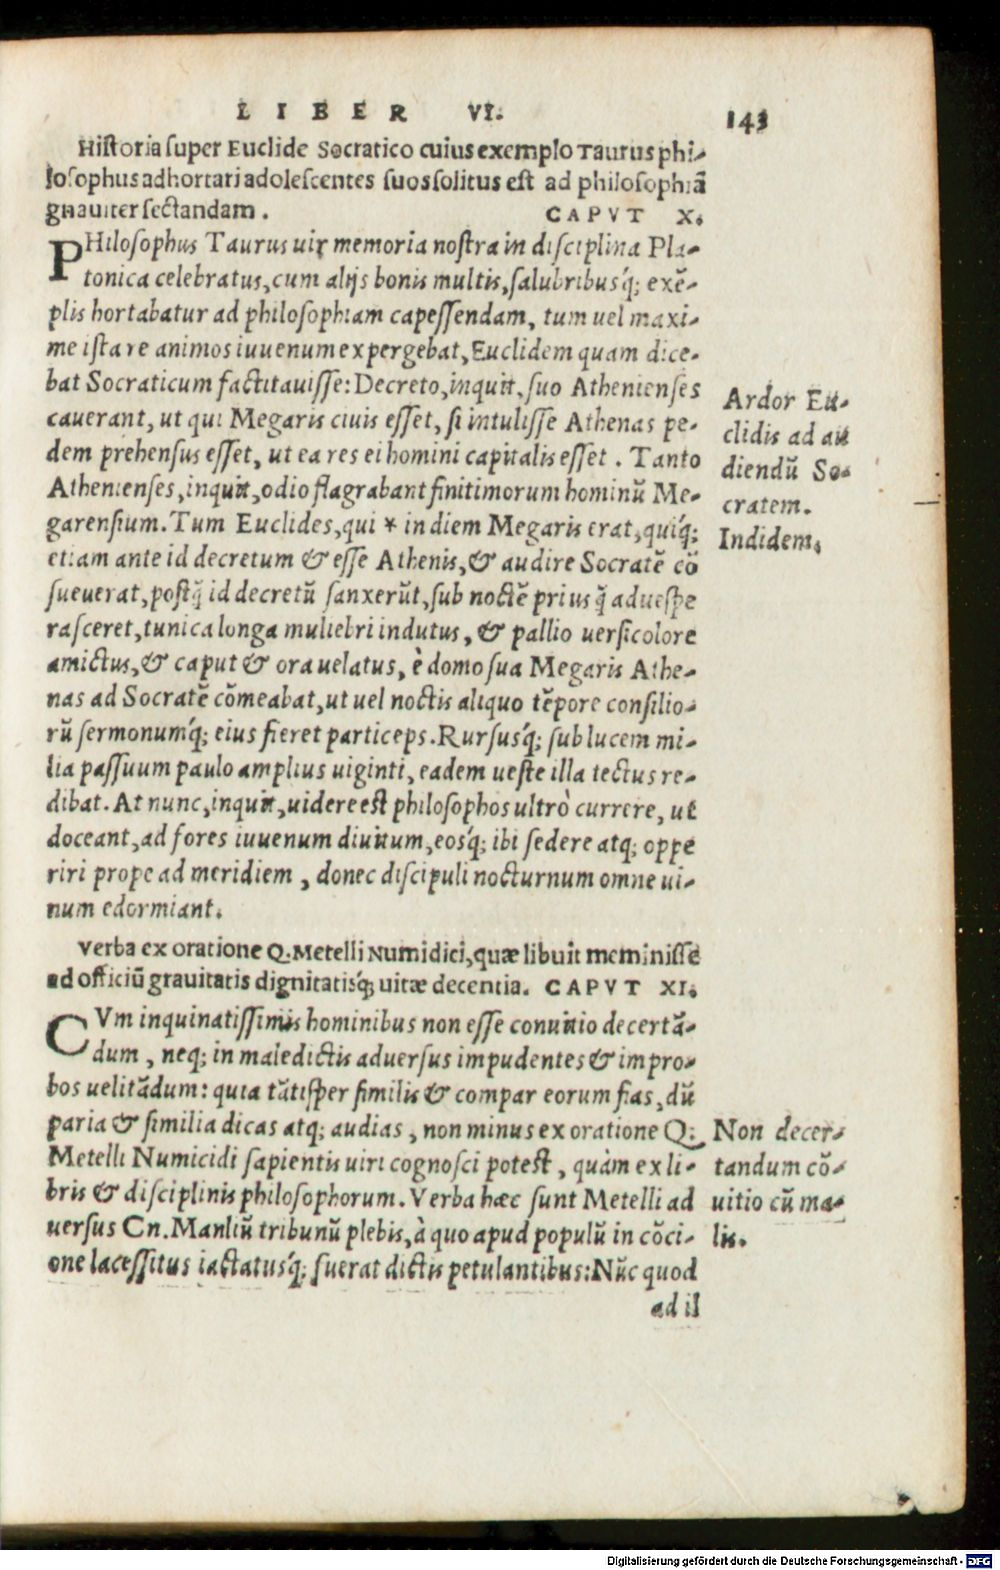 LIBER VI. 143
Historia super Euclide Socratico cuius exemplo Taurus phi-
losophus adhortari adolescentes suos solitus est ad philosophiā
gnauiter sectandam. CAPVT X.
PHilosophus Taurus uir memoria nostra in disciplina Pla-
tonica celebratus, cum alijs bonis multis, salubribusq́; exē-
plis hortabatur ad philosophiam capessendam, tum uel maxi-
me ista re animos iuuenum expergebat, Euclidem quam dice-
bat Socraticum factitauisse: Decreto, inquit, suo Athenienses
cauerant, ut qui Megaris ciuis esset, si intulisse Athenas pe-
dem prehensus esset, ut ea res ei homini capitalis esset. Tanto
Athenienses, inquit, odio flagrabant finitimorum hominū Me-
garensium. Tum Euclides, qui * indiem Megaris erat, quiq́;
etiam ante id decretum & esse Athenis, & audire Socratē cō
sueuerat, postq̄ id decretū sanxerūt, sub noctē prius q̄ aduespe
rasceret, tunica longa muliebri indutus, & pallio uersicolore
amictus, & caput & ora uelatus, è domo sua Megaris Athe-
nas ad Socratē cōmeabat, ut uel noctis aliquo tēpore consilio-
rū sermonumq́; eius fieret particeps. Rursusq́; sub lucem mi-
lia passuum paulo amplius uiginti, eadem ueste illa tectus re-
dibat. At nunc, inquit, uidere est philosophos ultrò currere, ut
doceant, ad fores iuuenum diuitum, eosq́; ibi sedere atq; oppe
riri prope ad meridiem, donec discipuli nocturnum omne ui-
num edormiant.
Ardor Eu-
clidis ad au
diendū So-
cratem.
Indidem.
Verba ex oratione Q. Metelli Numidici, quæ libuit meminisse
ad officiū grauitatis dignitatisq́; uitæ decentia. CAPVT XI.
CVm inquinatissimis hominibus non esse conuitio decertā-
dum, neq; in maledictis aduersus impudentes & impro-
bos uelitādum: quia tātisper similis & compar eorum fias, dū
paria & similia dicas atq; audias, non minus ex oratione Q.
Metelli Numicidi sapientis uiri cognosci potest, quàm ex li-
bris & disciplinis philosophorum. Verba hæc sunt Metelli ad
uersus Cn. Manliū tribunū plebis, à quo apud populū in cōci-
one lacessitus iactatusq́; fuerat dictis petulantibus: Nūc quod
ad il
Non decer-
tandum cō-
uitio cū ma-
lis.
Digitalisierung gefördert durch die Deutsche Forschungsgemeinschaft - DFG